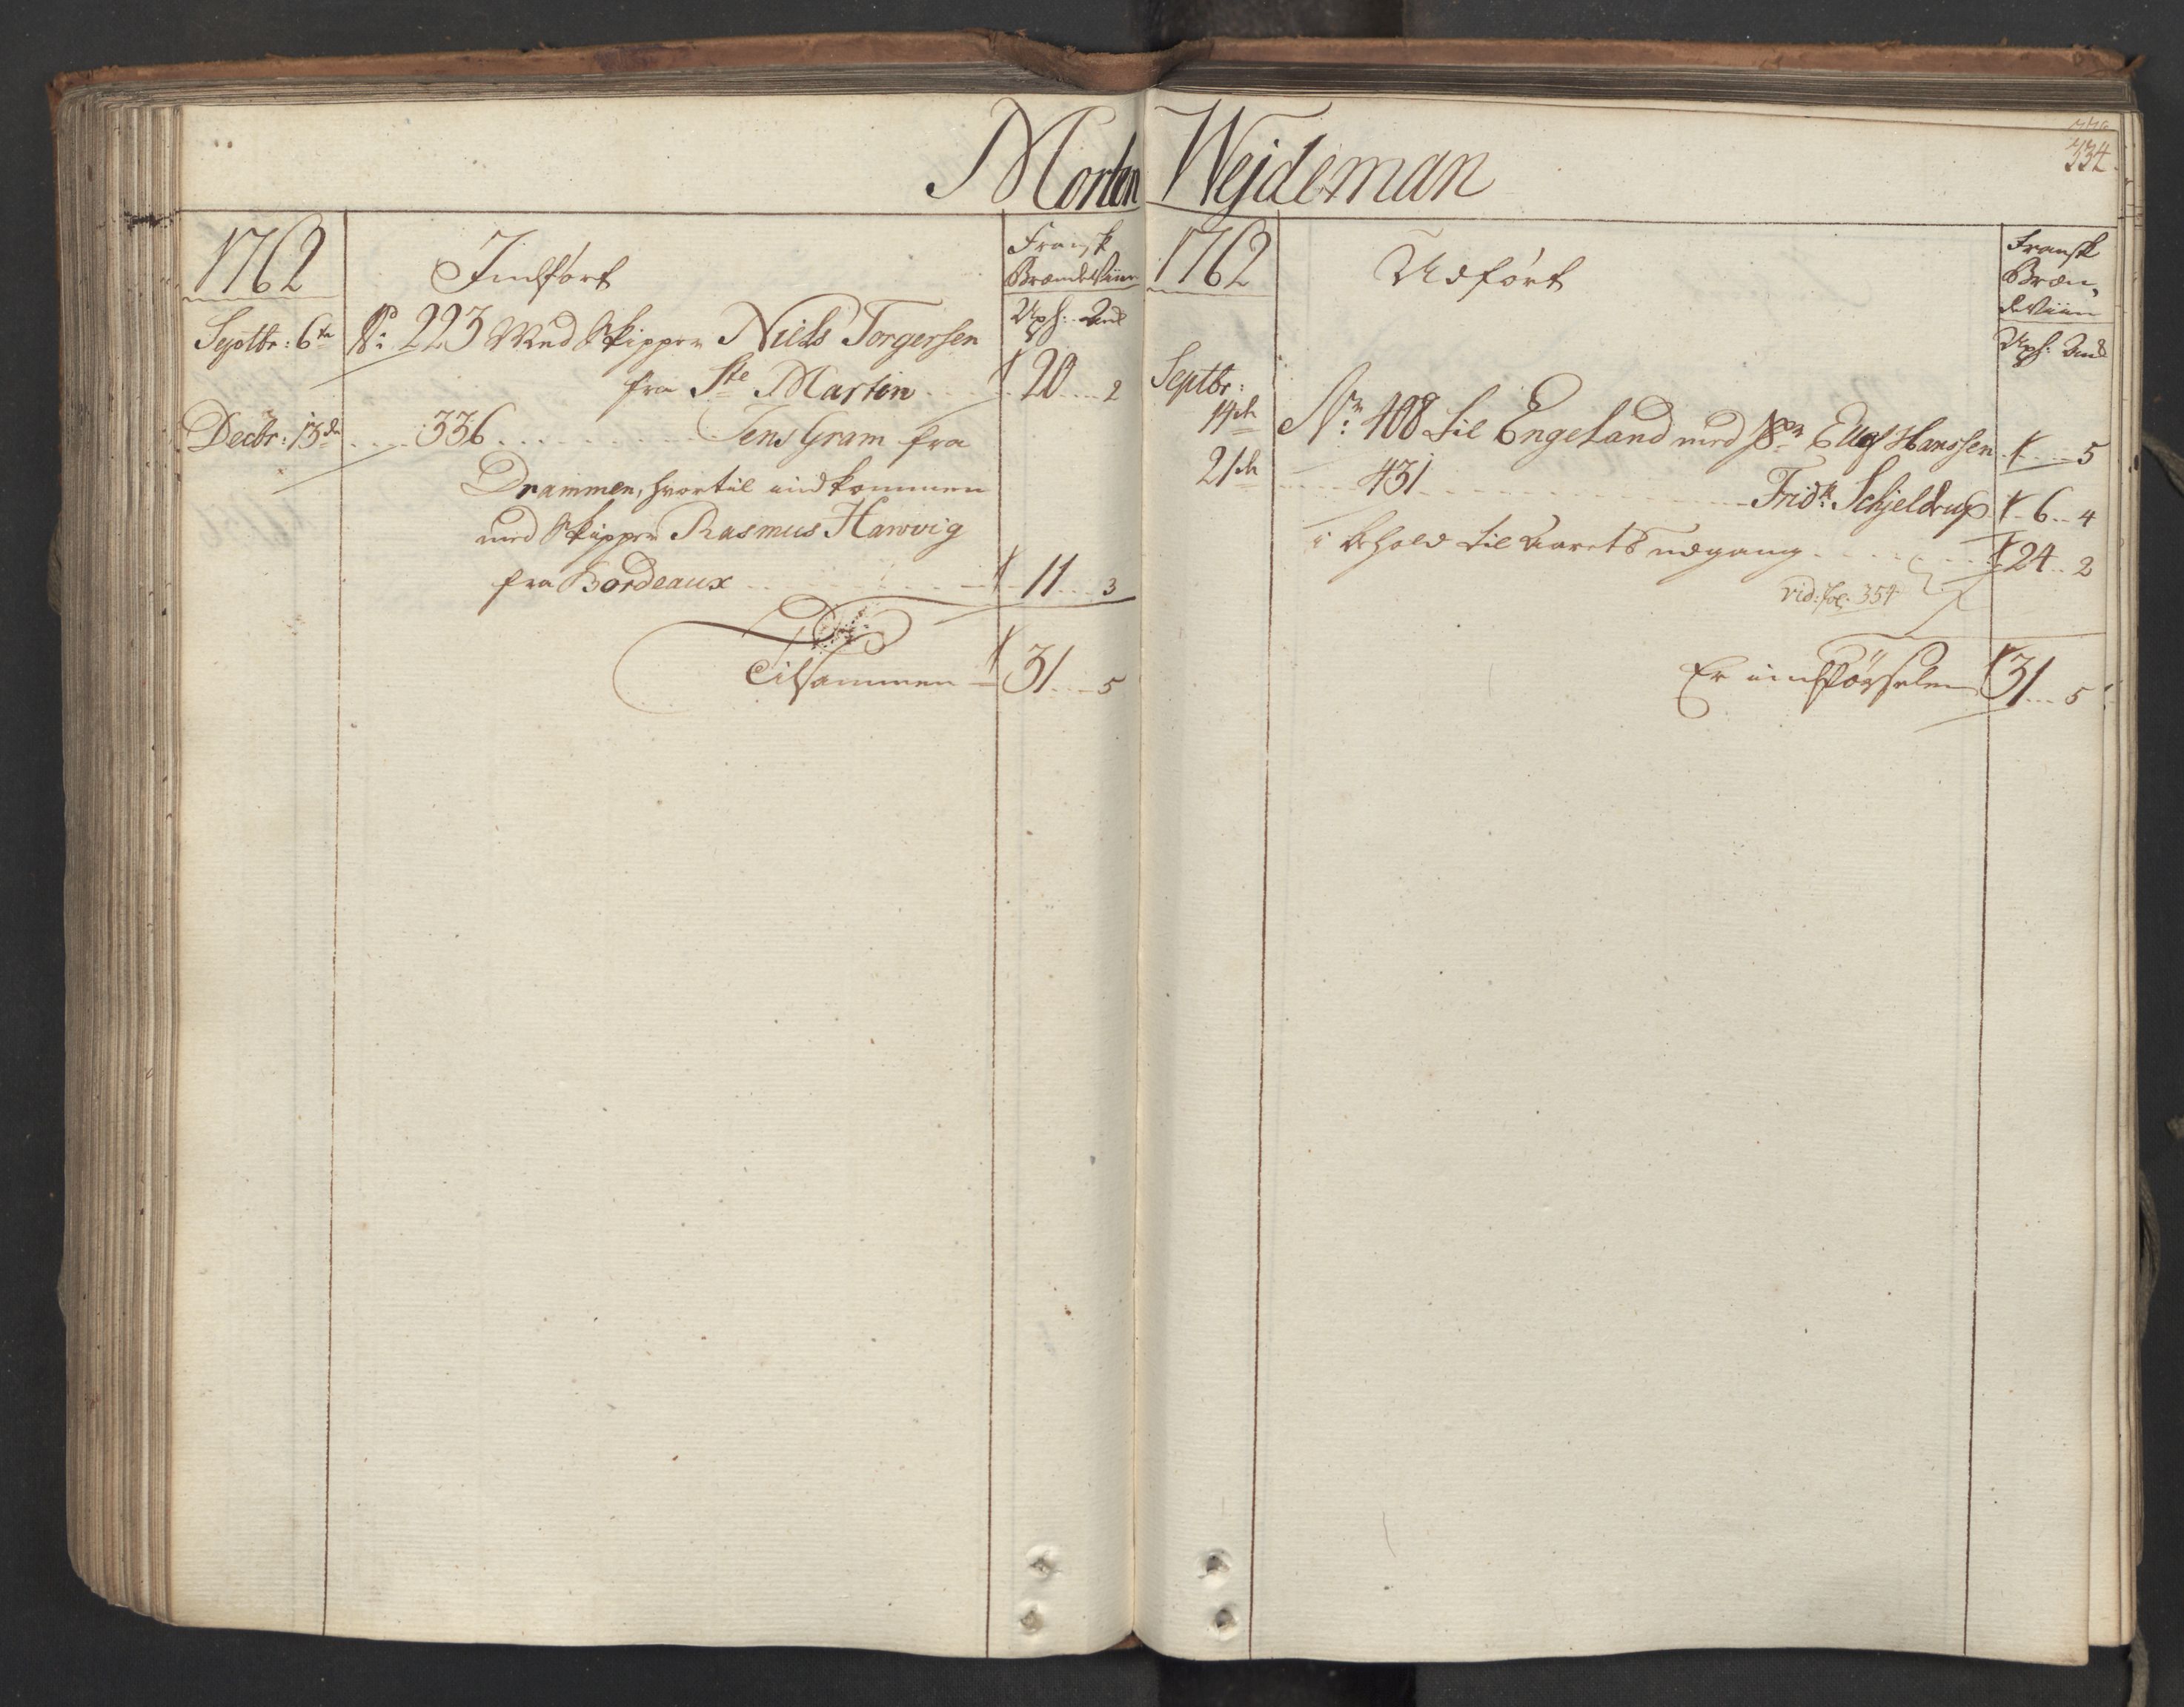 Morten Wejdeman
334
1762
Indført
Fransk
Brændeviin
Oxh: Ank
Septbr: 6te No: 223 Med Skipper Niels Torgersen
fra Ste Martin 20 2
Decbr: 13de 336 Jens Gram fra
Drammen, hvortil indkommen
med Skipper Rasmus Harwig
fra Bordeaux 11 3
Tilsammen 31 5
1762
Udført
Fransk
Bræn,
deviin
Oxh: Ank
Septbr:
14de No: 408 til Engeland med Skr Ellef Hanssen 5
21de 431 Fridk: Schjeldrup 6 4
i behold til aarets udgang 24 2
vid: fol: 354
Er indførselen 31 5